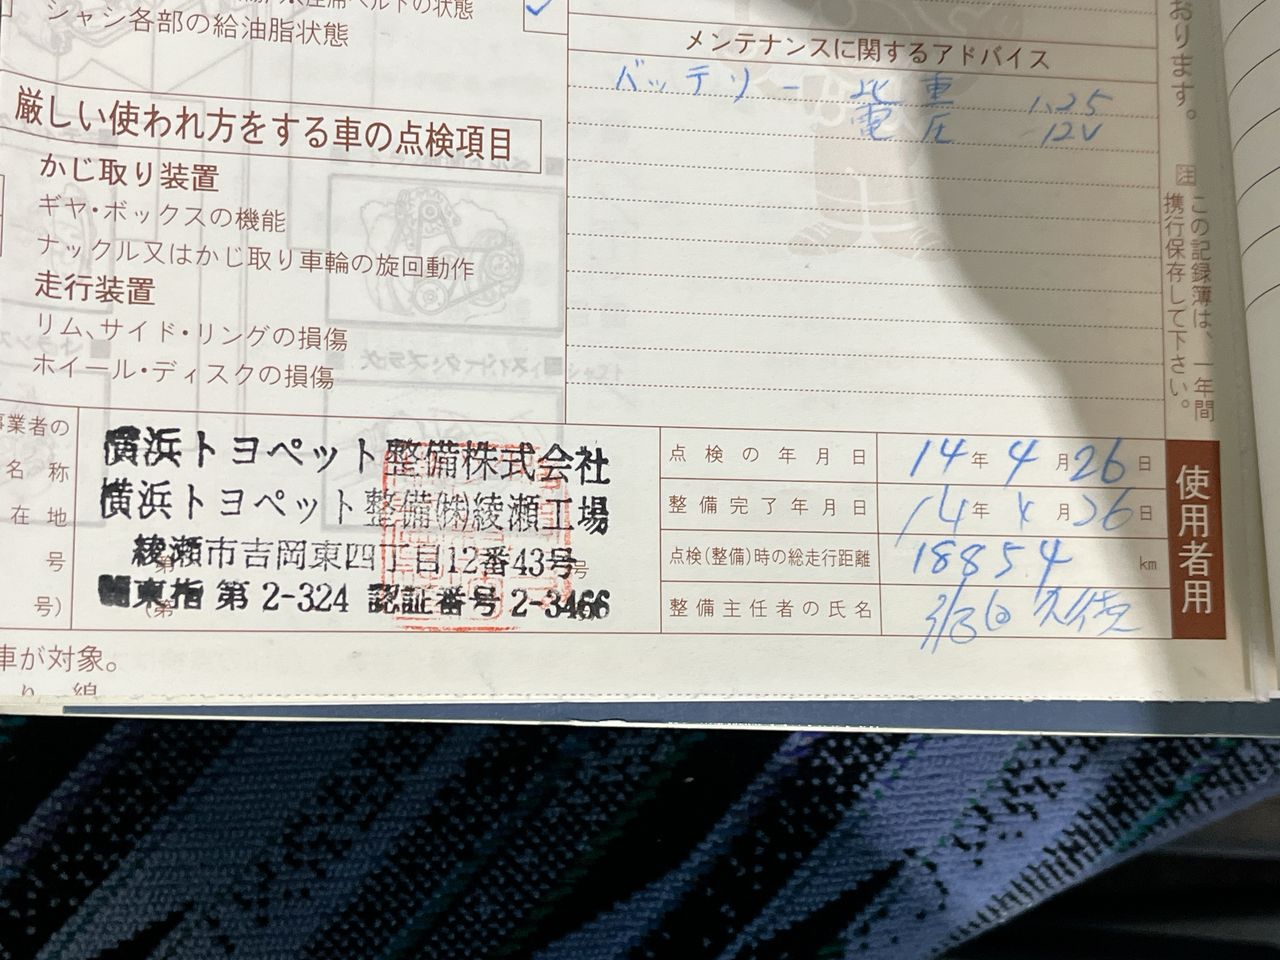 座席ベルトの状態
シャシ各部の給油脂状態
厳しい使われ方をする車の点検項目
かじ取り装置
ギヤ・ボックスの機能
ナックル又はかじ取り車輪の旋回動作
走行装置
リム、サイド・リングの損傷
ホイール・ディスクの損傷
メンテナンスに関するアドバイス
バッテリー 比重 1.25
電圧 12V
おります。
注 この記録簿は、一年間
携行保存して下さい。
事業者の
名称
在地
号
号)
横浜トヨペット整備株式会社
横浜トヨペット整備㈱綾瀬工場
綾瀬市吉岡東四丁目12番43号
関東指 第2-324 認証番号2-3466
点検の年月日 14年4月26日
整備完了年月日 14年4月26日
点検(整備)時の総走行距離 18854 km
整備主任者の氏名
使用者用
車が対象。